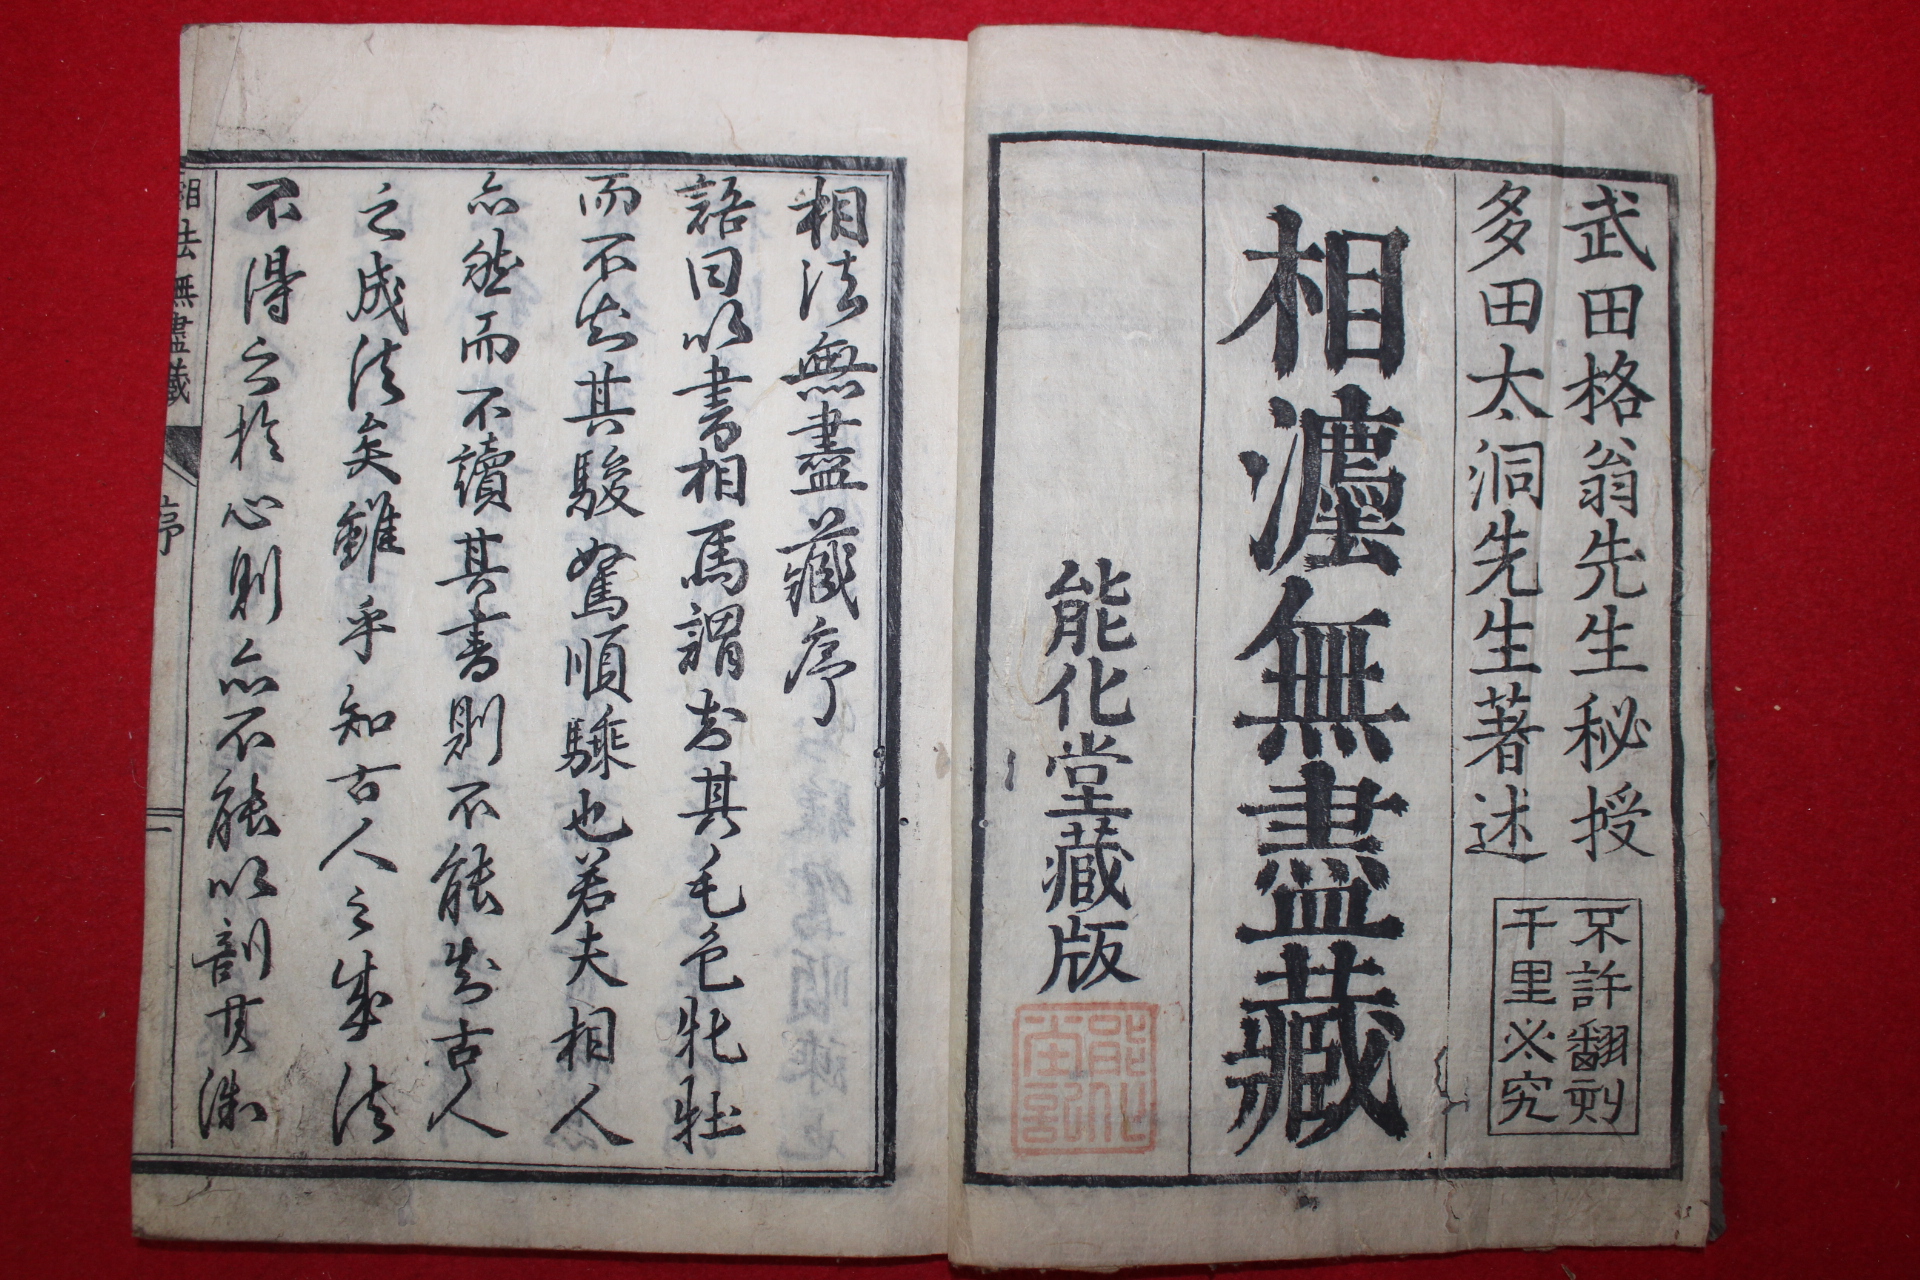 武田格翁先生秘授
多田太洞先生著述
不許翻刻
千里必究
相灋無盡藏
能化堂藏版
相法無盡藏序
語曰以書相馬謂知其毛色牝牡
而不知其駿駑順騄也若夫相人
亦然而不讀其書則不能知古人
之成法矣雖乎知古人之成法
不得之於心則亦不能以剖其
相法無盡藏
序
一